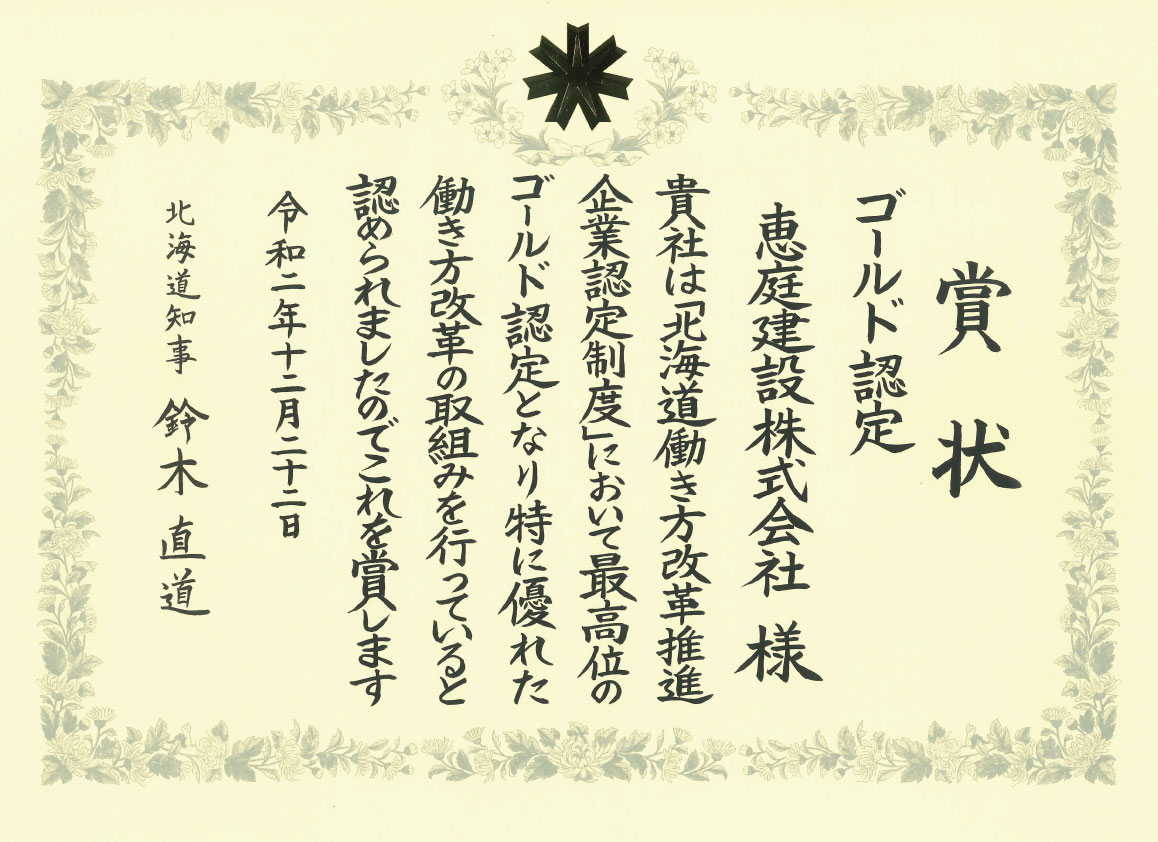 賞状
ゴールド認定
恵庭建設株式会社 様
貴社は「北海道働き方改革推進
企業認定制度」において最高位の
ゴールド認定となり特に優れた
働き方改革の取組みを行っていると
認められましたのでこれを賞します
令和二年十二月二十二日
北海道知事 鈴木直道